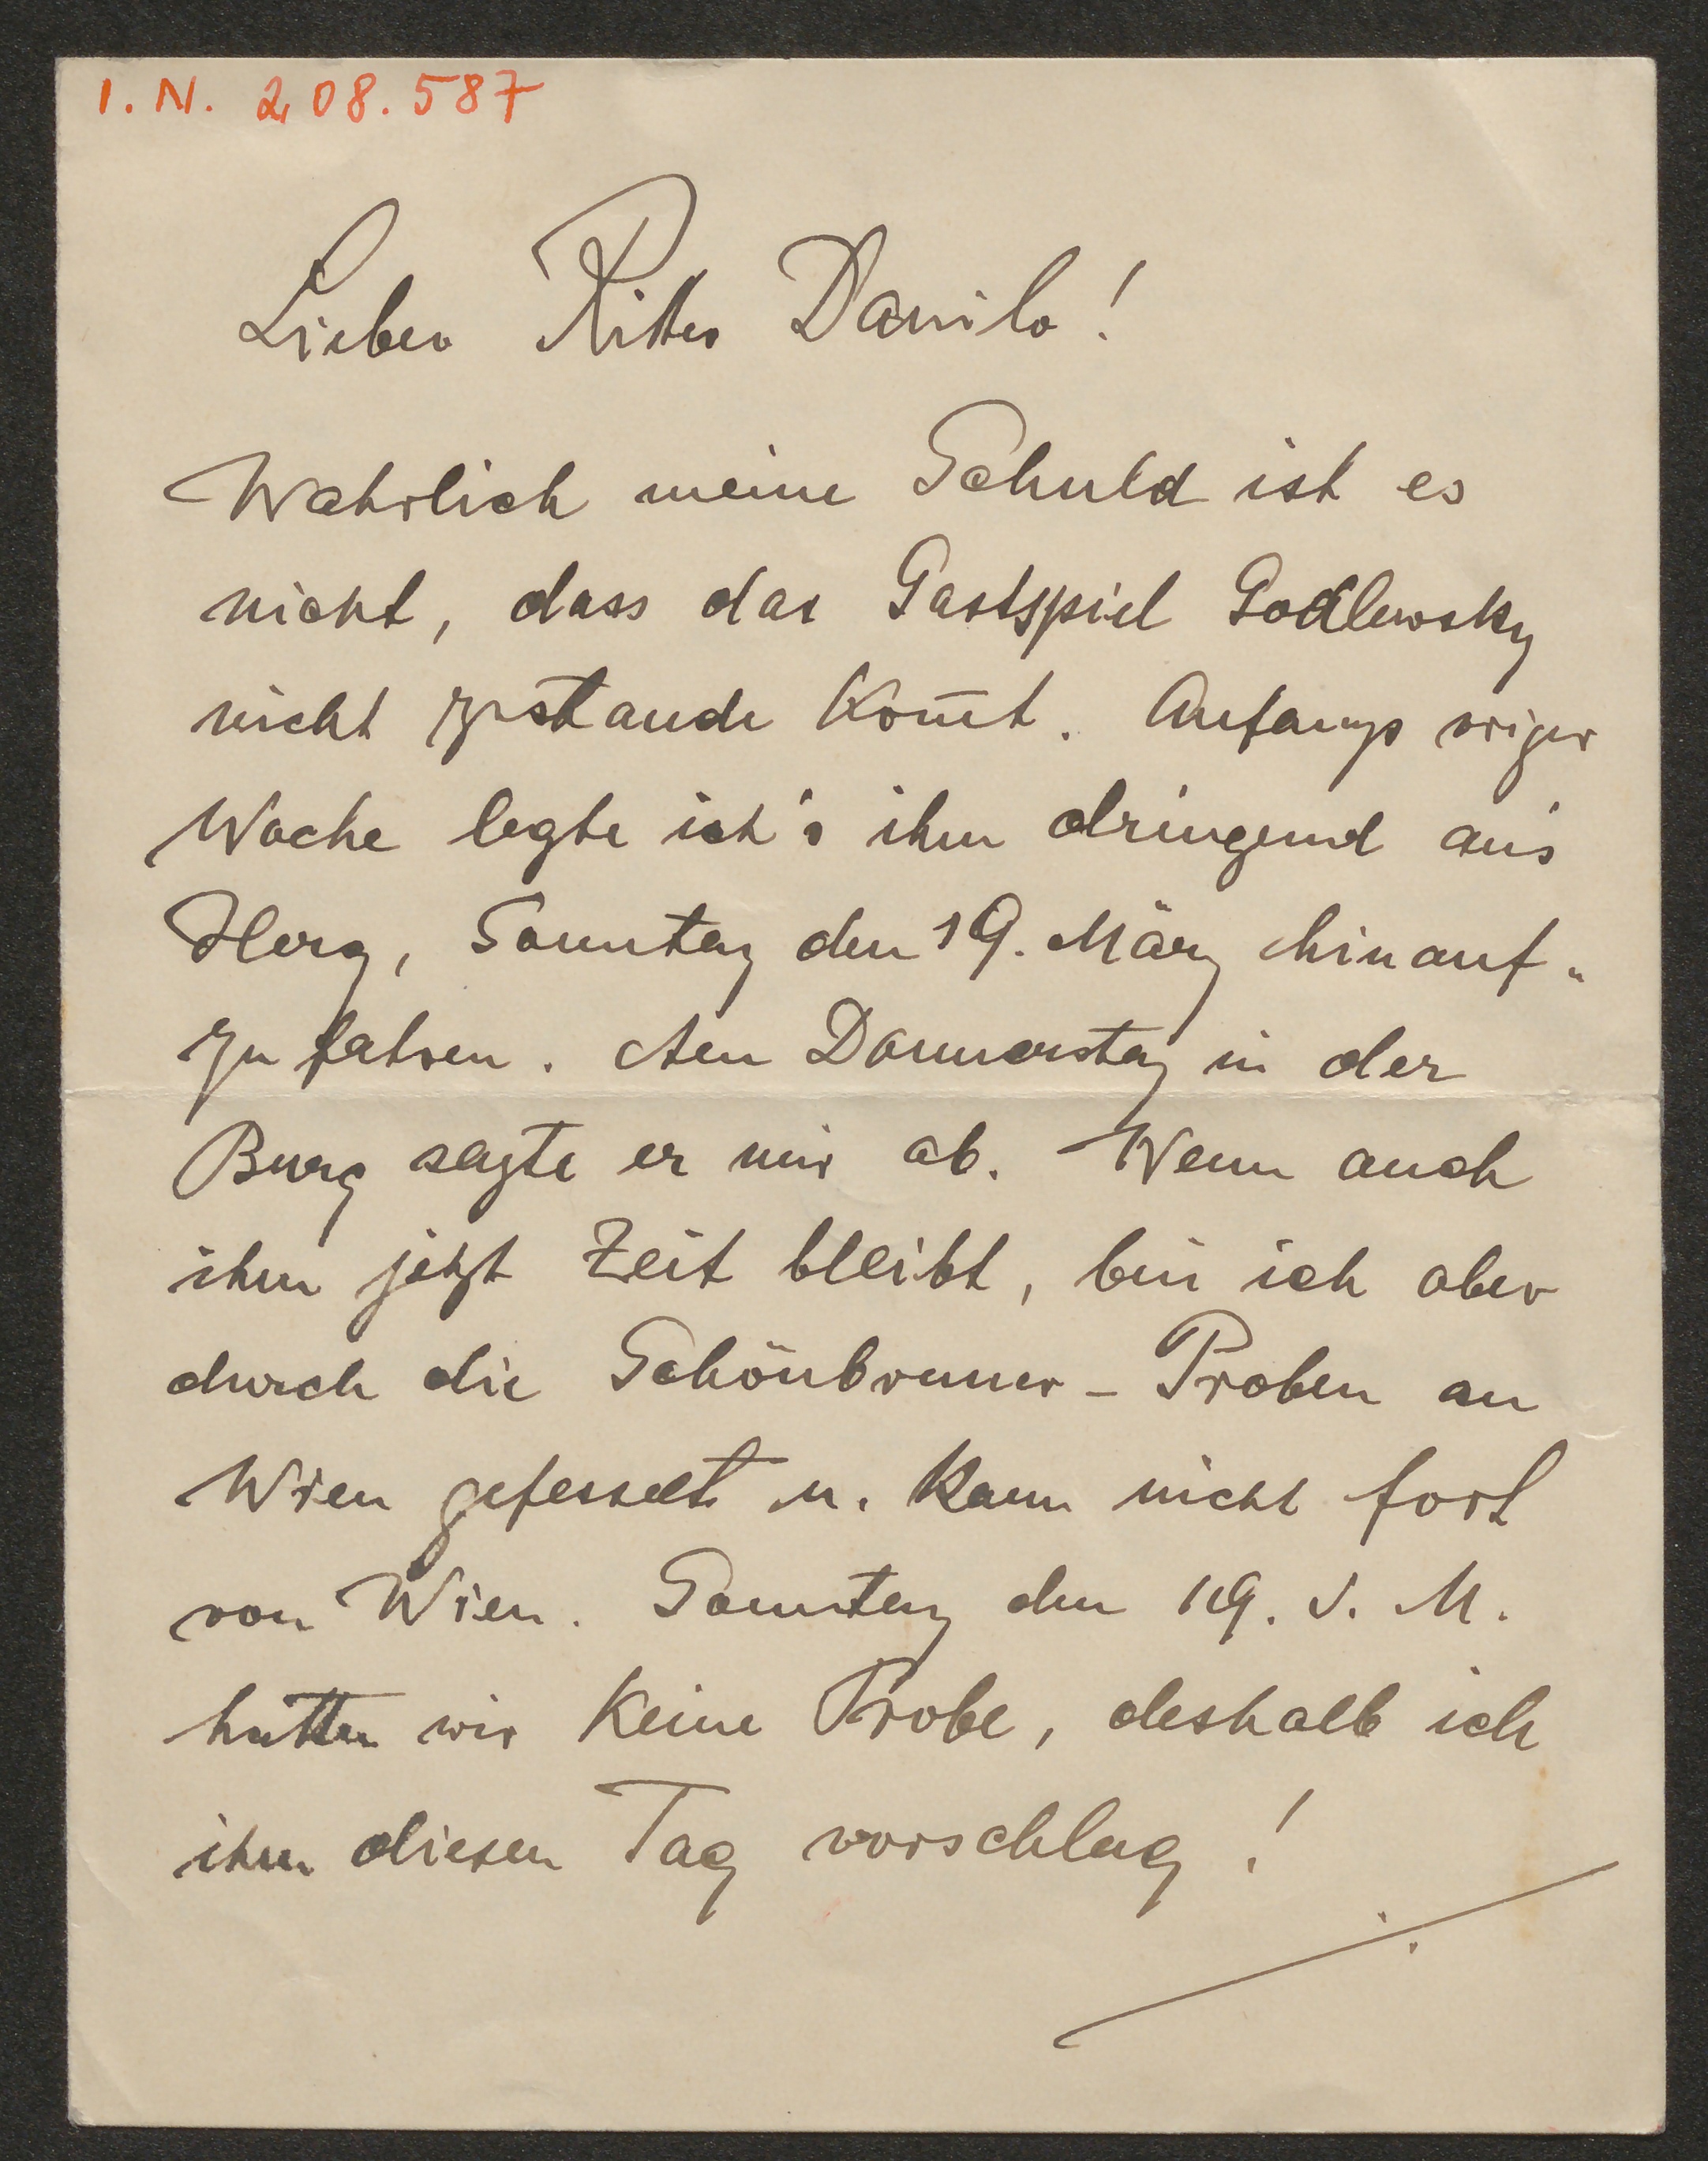 I. N. 208.587
Lieber Ritter Danilo!
Wahrlich meine Schuld ist es
nicht, dass das Gastspiel Godlewsky
nicht zustande kom̄t. Anfangs voriger
Woche legte ich's ihm dringend an's
Herz, Sonntag den 19. März hinauf-
zu fahren. Am Donnerstag in der
Burg sagte er mir ab. Wenn auch
ihm jetzt Zeit bleibt, bin ich aber
durch die Schönbrunner-Proben an
Wien gefesselt u. kann nicht fort
von Wien. Sonntag den 19. d. M.
hatten wir keine Probe, deshalb ich
ihm diesen Tag vorschlug!